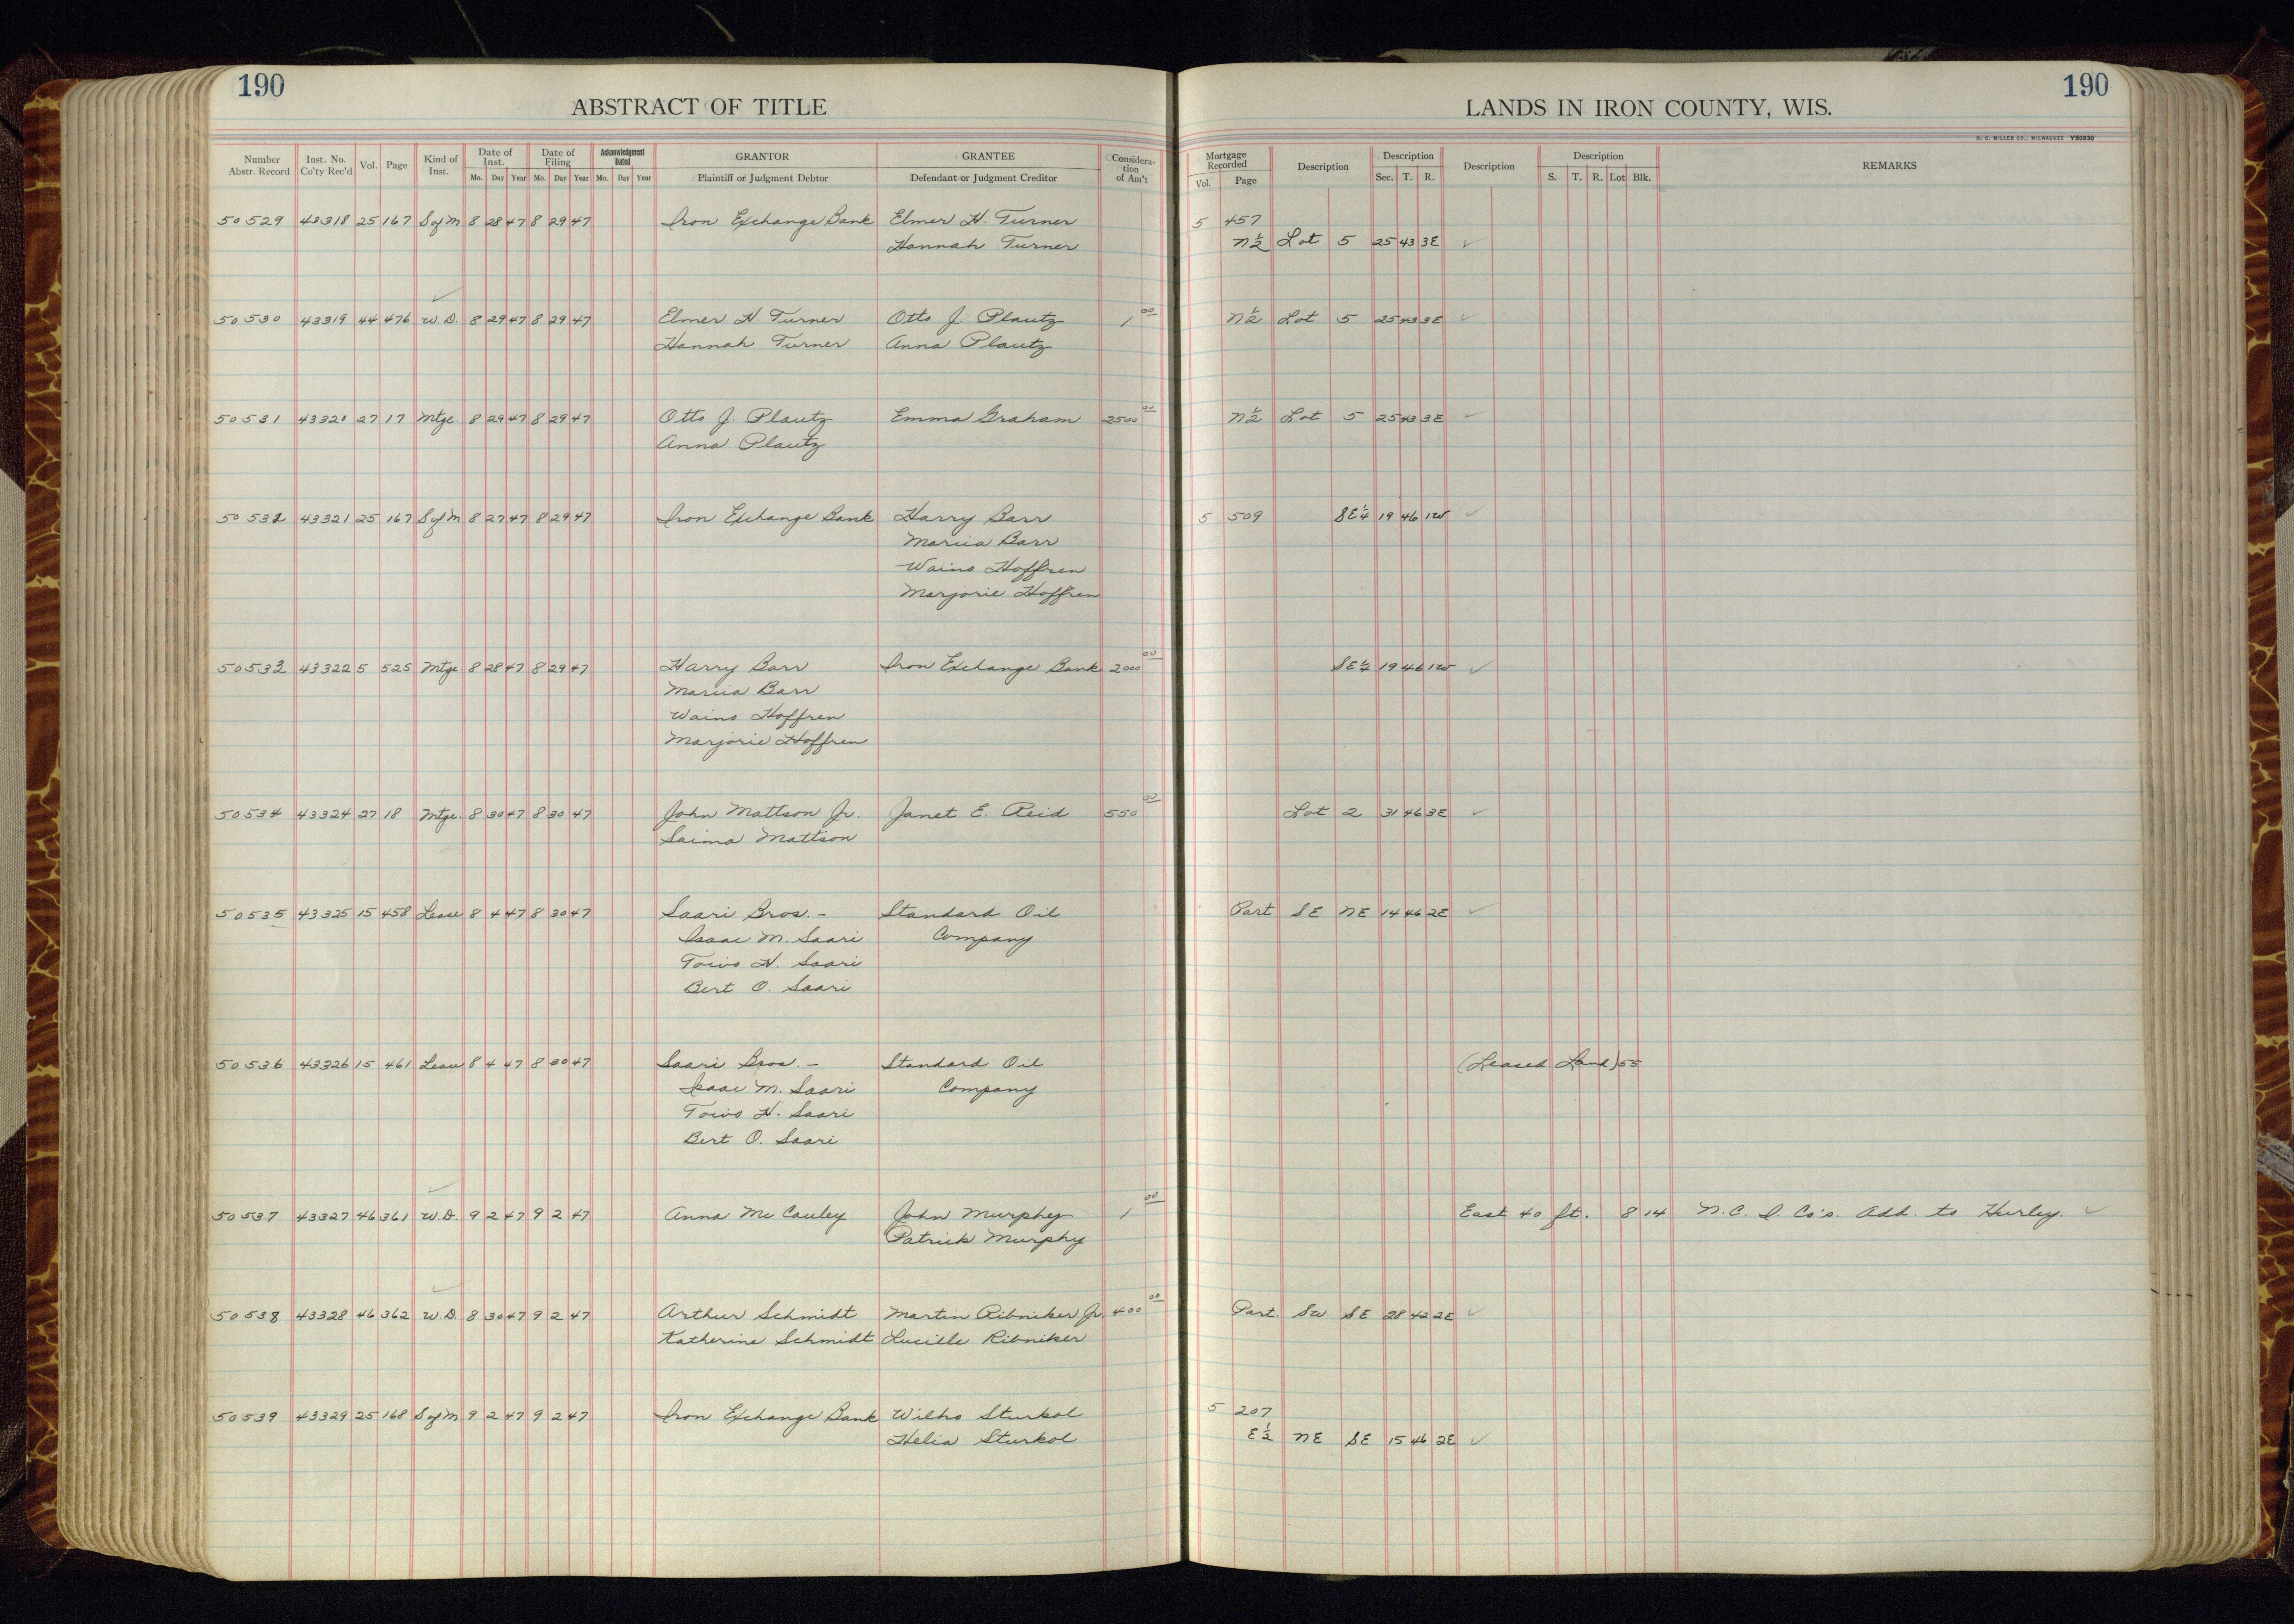 190
ABSTRACT OF TITLE
LANDS IN IRON COUNTY, WIS.
190
H. C. MILLER CO., MILWAUKEE Y50930
Number Abstr. Record | Inst. No. Co'ty Rec'd | Vol. | Page | Kind of Inst. | Date of Inst. Mo. Day Year | Date of Filing Mo. Day Year | Acknowledgment Dated Mo. Day Year | GRANTOR Plaintiff or Judgment Debtor | GRANTEE Defendant or Judgment Creditor | Consideration of Am't | Mortgage Recorded Vol. Page | Description | Description Sec. T. R. | Description | Description S. T. R. Lot Blk. | REMARKS
50529 43318 25 167 S of M 8 28 47 8 29 47 Iron Exchange Bank Elmer H. Turner 5 457
Hannah Turner N½ Lot 5 25 43 3E ✓
50530 43319 44 476 W.D. 8 29 47 8 29 47 Elmer H. Turner Otto J. Plautz 1 00 N½ Lot 5 25 43 3E ✓
Hannah Turner Anna Plautz
50531 43320 27 17 Mtge 8 29 47 8 29 47 Otto J. Plautz Emma Graham 2500 00 N½ Lot 5 25 43 3E ✓
Anna Plautz
50532 43321 25 167 S of M 8 27 47 8 29 47 Iron Exchange Bank Harry Barr 5 509 SE¼ 19 46 1W ✓
Marcia Barr
Waino Hoffren
Marjorie Hoffren
50533 43322 5 525 Mtge 8 28 47 8 29 47 Harry Barr Iron Exchange Bank 2000 00 SE¼ 19 46 1W ✓
Marcia Barr
Waino Hoffren
Marjorie Hoffren
50534 43324 27 18 Mtge. 8 30 47 8 30 47 John Mattson Jr. Janet E. Reid 550 00 Lot 2 31 46 3E ✓
Saima Mattson
50535 43325 15 458 Lease 8 4 47 8 30 47 Saari Bros. - Standard Oil Part SE NE 14 46 2E ✓
Isaac M. Saari Company
Toivo H. Saari
Bert O. Saari
50536 43326 15 461 Lease 8 4 47 8 30 47 Saari Bros. - Standard Oil (Leased Land) 55
Isaac M. Saari Company
Toivo H. Saari
Bert O. Saari
50537 43327 46 361 W.D. 9 2 47 9 2 47 Anna McCauley John Murphy 1 00 East 40 ft. 8 14 N.C.I. Co's. Add. to Hurley. ✓
Patrick Murphy
50538 43328 46 362 W.D. 8 30 47 9 2 47 Arthur Schmidt Martin Ribniker Jr. 400 00 Part. SW SE 28 42 2E ✓
Katherine Schmidt Lucille Ribniker
50539 43329 25 168 S of M 9 2 47 9 2 47 Iron Exchange Bank Wilho Sturkol 5 207
Helia Sturkol E½ NE SE 15 46 2E ✓